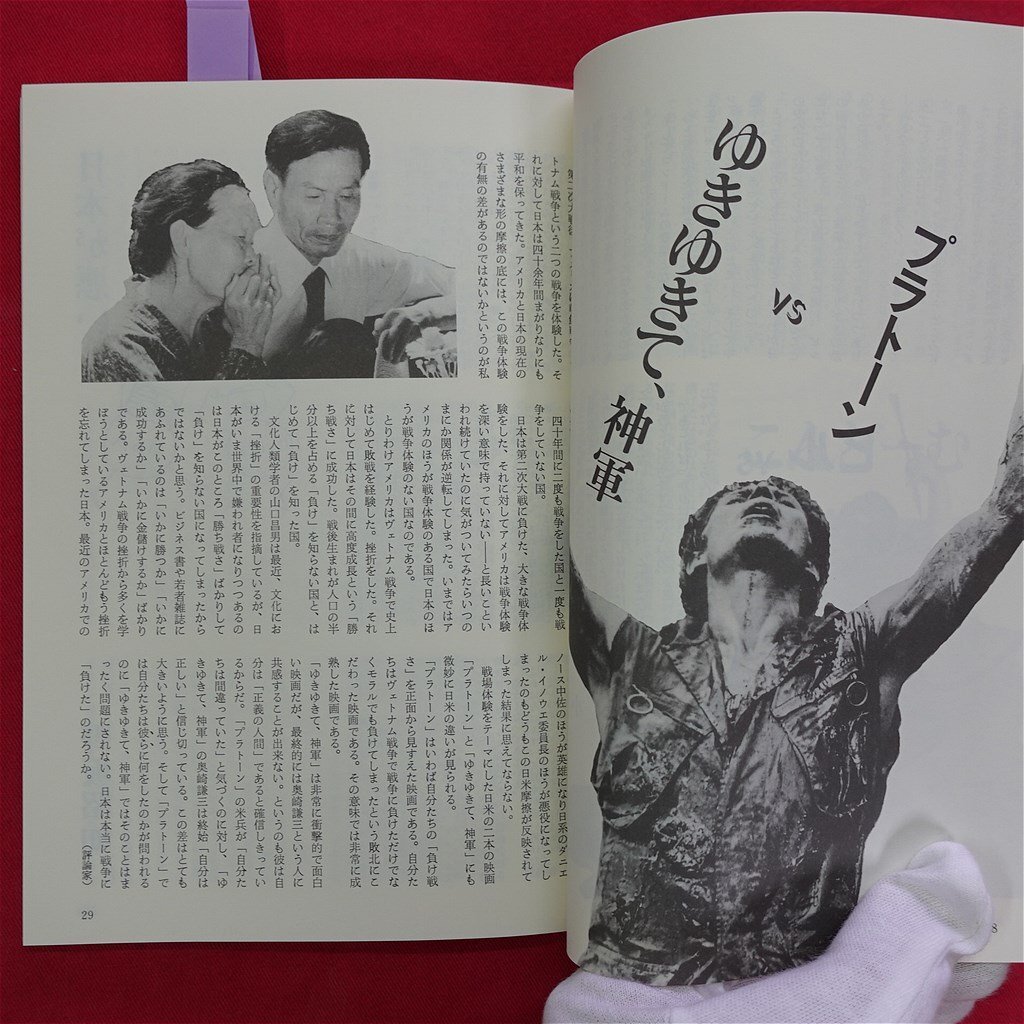 プラトーン
vs
ゆきゆきて、神軍
8
トナム戦争という二つの戦争を体験した。そ
れに対して日本は四十余年間まがりなりにも
平和を保ってきた。アメリカと日本の現在の
さまざまな形の摩擦の底には、この戦争体験
の有無の差があるのではないかというのが私
四十年間に二度も戦争をした国と一度も戦
争をしていない国。
日本は第二次大戦に負けた、大きな戦争体
験をした、それに対してアメリカは戦争体験
を深い意味で持っていない――と長いことい
われ続けていたのに気がついてみたらいつの
まにか関係が逆転してしまった。いまではア
メリカのほうが戦争体験のある国で日本のほ
うが戦争体験のない国なのである。
とりわけアメリカはヴェトナム戦争で史上
はじめて敗戦を経験した。挫折をした。それ
に対して日本はその間に高度成長という「勝
ち戦さ」に成功した。戦後生まれが人口の半
分以上を占める「負け」を知らない国と、は
じめて「負け」を知った国。
文化人類学者の山口昌男は最近、文化にお
ける「挫折」の重要性を指摘しているが、日
本がいま世界中で嫌われ者になりつつあるの
は日本がこのところ「勝ち戦さ」ばかりして
「負け」を知らない国になってしまったから
ではないかと思う。ビジネス書や若者雑誌に
あふれているのは「いかに勝つか」「いかに
成功するか」「いかに金儲けするか」ばかり
である。ヴェトナム戦争の挫折から多くを学
ぼうとしているアメリカとほとんどもう挫折
を忘れてしまった日本。最近のアメリカでの
ノース中佐のほうが英雄になり日系のダニエ
ル・イノウエ委員長のほうが悪役になってし
まったのもどうもこの日米摩擦が反映されて
しまった結果に思えてならない。
戦場体験をテーマにした日米の二本の映画
「プラトーン」と「ゆきゆきて、神軍」にも
微妙に日米の違いが見られる。
「プラトーン」はいわば自分たちの「負け戦
さ」を正面から見すえた映画である。自分た
ちはヴェトナム戦争で戦争に負けただけでな
くモラルでも負けてしまったという敗北にこ
だわった映画である。その意味では非常に成
熟した映画である。
「ゆきゆきて、神軍」は非常に衝撃的で面白
い映画だが、最終的には奥崎謙三という人に
共感することが出来ない。というのも彼は自
分は「正義の人間」であると確信しきってい
るからだ。「プラトーン」の米兵が「自分た
ちは間違っていた」と気づくのに対し、「ゆ
きゆきて、神軍」の奥崎謙三は終始「自分は
正しい」と信じ切っている。この差はとても
大きいように思う。そして「プラトーン」で
は自分たちは彼らに何をしたのかが問われる
のに「ゆきゆきて、神軍」ではそのことはま
ったく問題にされない。日本は本当に戦争に
「負けた」のだろうか。
（評論家）
29